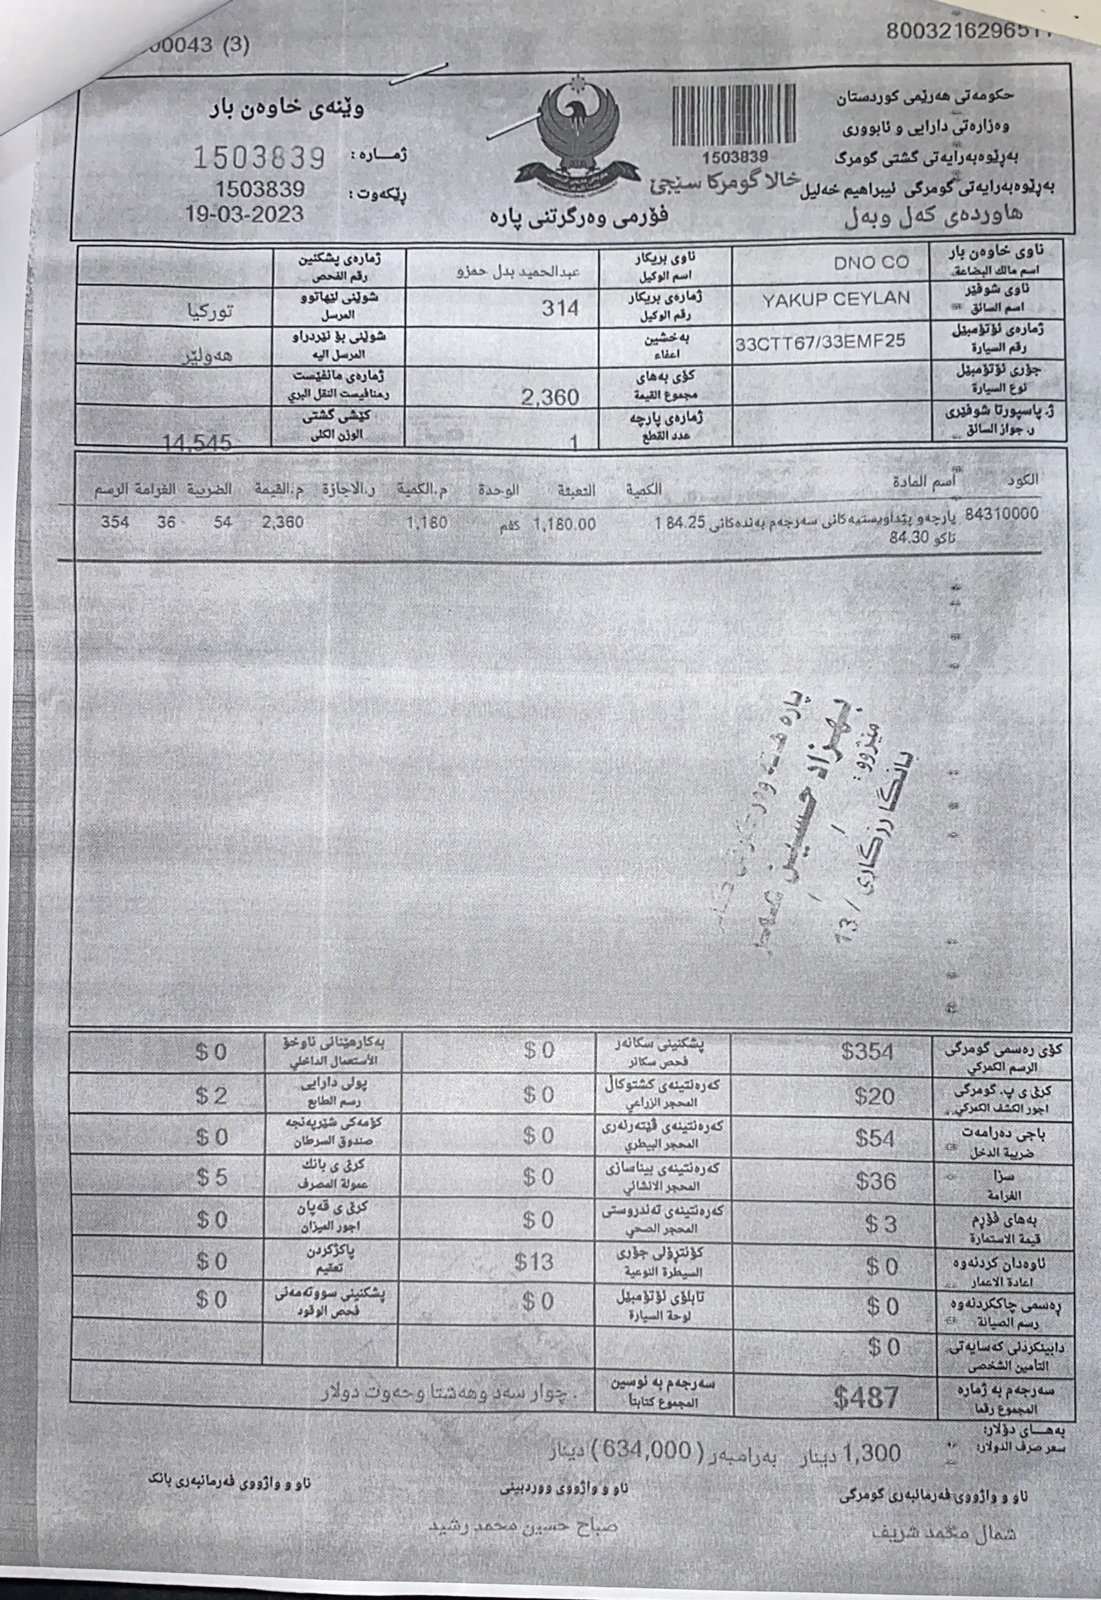 00043 (3)
حکومەتی هەرێمی کوردستان
وەزارەتی دارایی و ئابووری
بەڕێوەبەرایەتی گشتی گومرگ
بەڕێوەبەرایەتی گومرگی ئیبراهیم خەلیل
هاوردەی کەل وپەل
1503839
خالا گومرکا سێجێ
فۆرمی وەرگرتنی پارە
وێنەی خاوەن بار
ژمارە : 1503839
ڕێکەوت : 1503839
19-03-2023
ناوی خاوەن بار DNO CO ناوی بریکار عبدالحمید بدل حمزو ژمارەی پشکنین
اسم مالك البضاعة اسم الوكيل رقم الفحص
ناوی شوفێر YAKUP CEYLAN ژمارەی بریکار 314 شوێنی لێهاتوو تورکیا
اسم السائق رقم الوكيل المرسل
ژمارەی ئۆتۆمبێل 33CTT67/33EMF25 بەخشین شوێنی بۆ نێردراو هەولێر
رقم السيارة اعفاء المرسل اليه
جۆری ئۆتۆمبێل کۆی بەهای 2,360 ژمارەی مانفێست
نوع السيارة مجموع القيمة رمنافيست النقل البري
ژ. پاسپۆرتا شوفێری ژمارەی پارچە 1 کێشی گشتی 14,545
ر. جواز السائق عدد القطع الوزن الكلي
الكود أسم المادة الكمية التعبئة الوحدة م.الكمية ر.الاجازة م.القيمة الضريبة الغرامة الرسم
84310000 پارچەو پێداویستیەکانی سەرجەم بەندەکانی 84.25 1 1,180.00 کغم 1,180 2,360 54 36 354
تاکو 84.30
بهزاد حسین
مێژوو: / /
بانگا رزگاری / 13
کۆی رەسمی گومرگی $354 پشکنینی سکانەر $ 0 بەکارهێنانی ناوخۆ $ 0
الرسم الكمركي فحص سكانر الأستعمال الداخلي
کرێ ی پ. گومرگی $20 کەرەنتینەی کشتوکاڵ $ 0 پولی دارایی $ 2
اجور الكشف الكمركي المحجر الزراعي رسم الطابع
باجی دەرامەت $54 کەرەنتینەی ڤێتەرنەری $ 0 کۆمەکی شێرپەنجە $ 0
ضريبة الدخل المحجر البيطري صندوق السرطان
سزا $36 کەرەنتینەی بیناسازی $ 0 کرێ ی بانك $ 5
الغرامة المحجر الانشائي عمولة المصرف
بەهای فۆرم $ 3 کەرەنتینەی تەندروستی $ 0 کرێ ی قەپان $ 0
قيمة الاستمارة المحجر الصحي اجور الميزان
ئاوەدان کردنەوە $ 0 کۆنترۆڵی جۆری $13 پاکژکردن $ 0
اعادة الاعمار السيطرة النوعية تعقيم
ڕەسمی چاککردنەوە $ 0 تابلۆی ئۆتۆمبێل $ 0 پشکنینی سووتەمەنی $ 0
رسم الصيانة لوحة السيارة فحص الوقود
دابینکردنی کەسایەتی $ 0
التأمين الشخصي
سەرجەم بە ژمارە $487 سەرجەم بە نوسین چوار سەد وهەشتا وحەوت دولار .
المجموع رقما المجموع كتابتا
بەهای دۆلار:
سعر صرف الدولار: 1,300 دینار بەرامبەر ( 634,000 ) دینار
ناو و واژووی فەرمانبەری گومرگی ناو و واژووی ووردبینی ناو و واژووی فەرمانبەری بانک
شمال محمد شریف صباح حسین محمد رشید